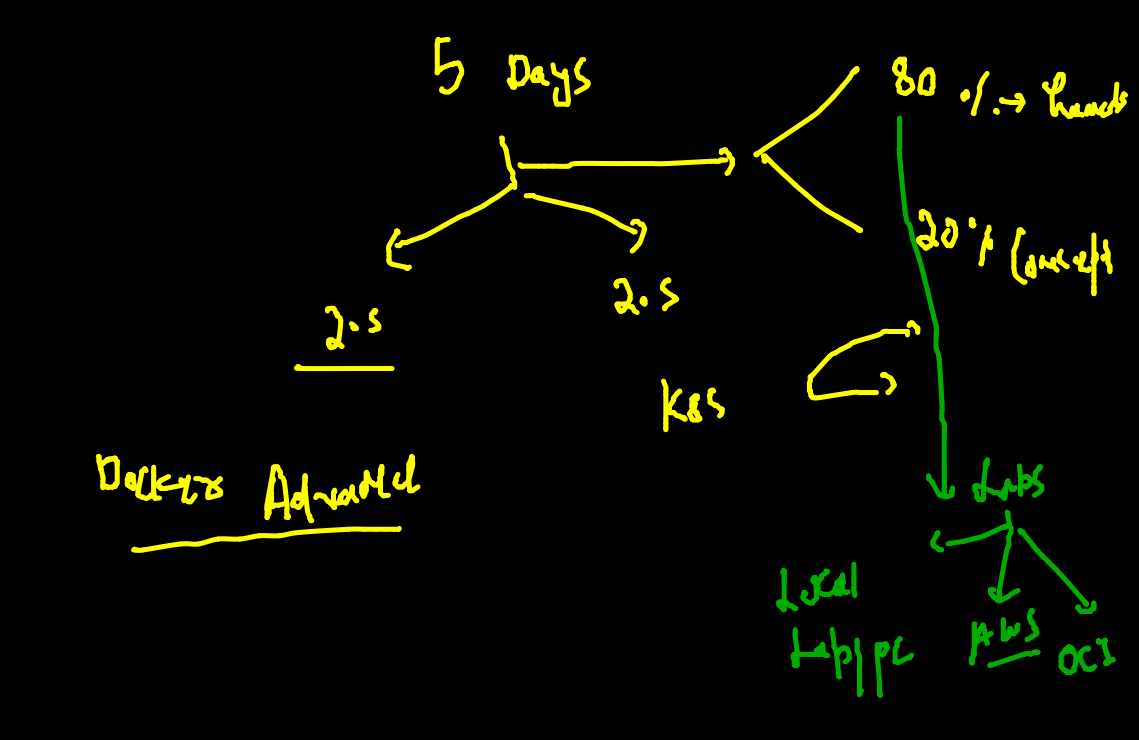 5 Days
80 % → hands
20% Concept
2.5
2.5
K8S
Docker Advanced
Labs
Local
Lap/pc
AWS
OCI